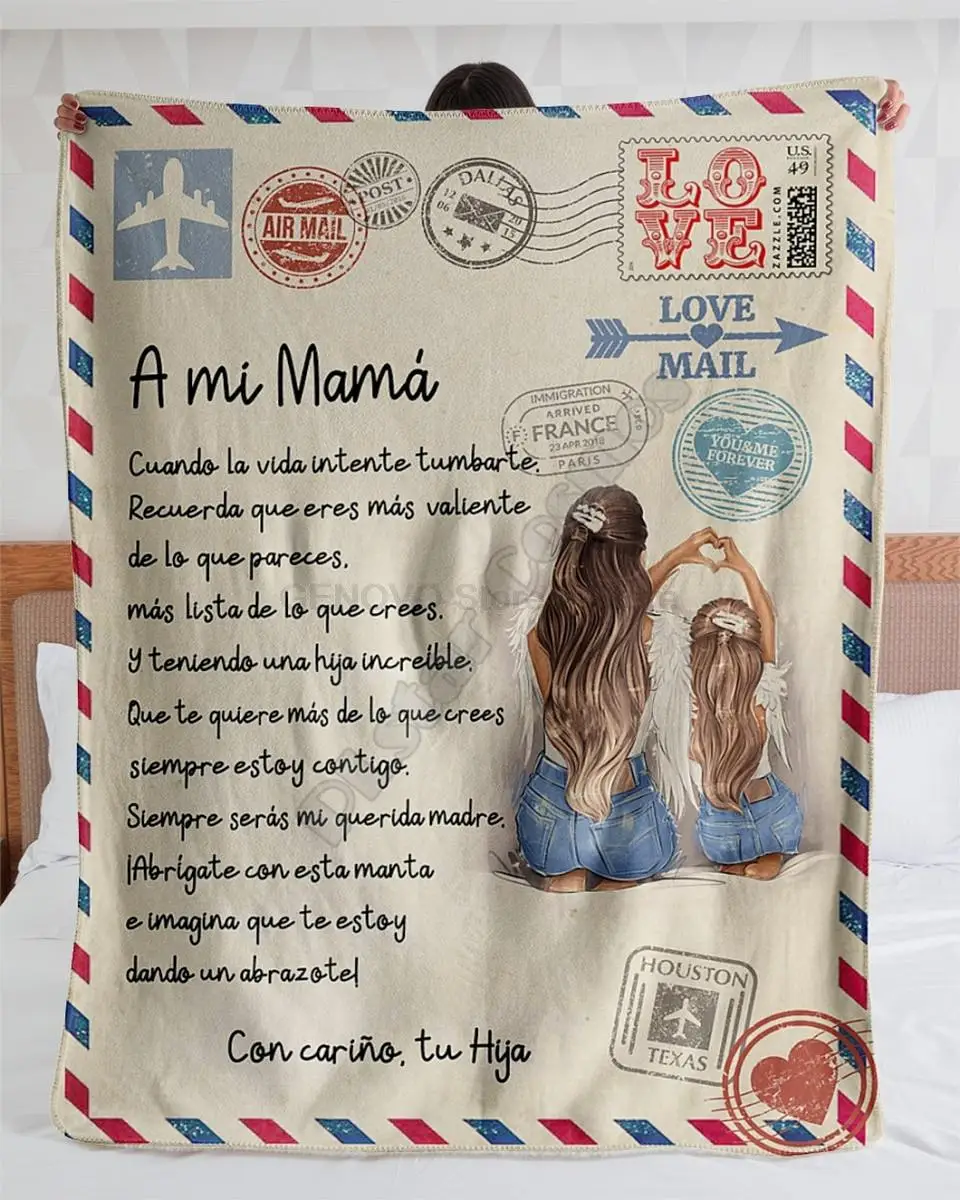 AIR MAIL
POST
DALLAS
12 06 2015
LOVE
U.S. 49
ZAZZLE.COM
LOVE
MAIL
IMMIGRATION
ARRIVED
FRANCE
23 APR 2018
PARIS
YOU&ME
FOREVER
A mi Mamá
Cuando la vida intente tumbarte.
Recuerda que eres más valiente
de lo que pareces,
más lista de lo que crees.
Y teniendo una hija increíble.
Que te quiere más de lo que crees
siempre estoy contigo.
Siempre serás mi querida madre.
¡Abrígate con esta manta
e imagina que te estoy
dando un abrazote!
Con cariño, tu Hija
HOUSTON
TEXAS